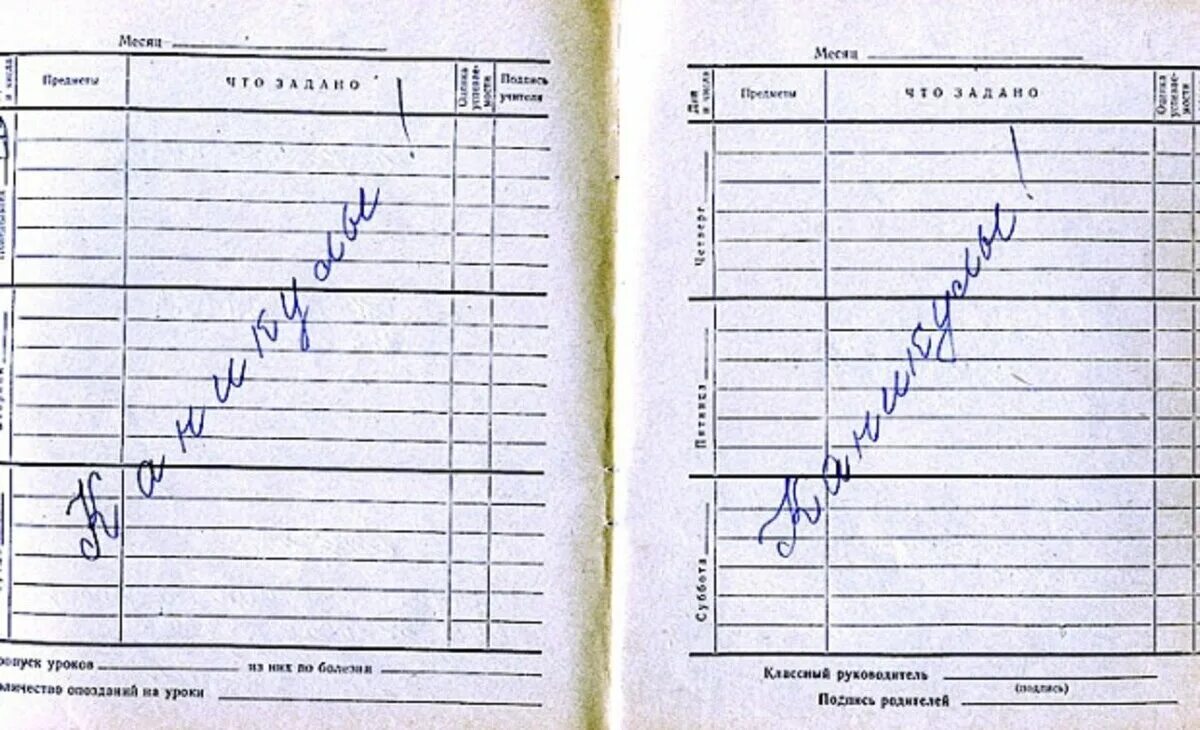 Месяц
Предметы ЧТО ЗАДАНО Оценка успеваемости Подпись учителя
Каникулы!
пропуск уроков из них по болезни
количество опозданий на уроки
Месяц
Дни и числа Предметы ЧТО ЗАДАНО Оценка успеваемости
Четверг
Каникулы!
Пятница
Суббота
Классный руководитель
(подпись)
Подпись родителей